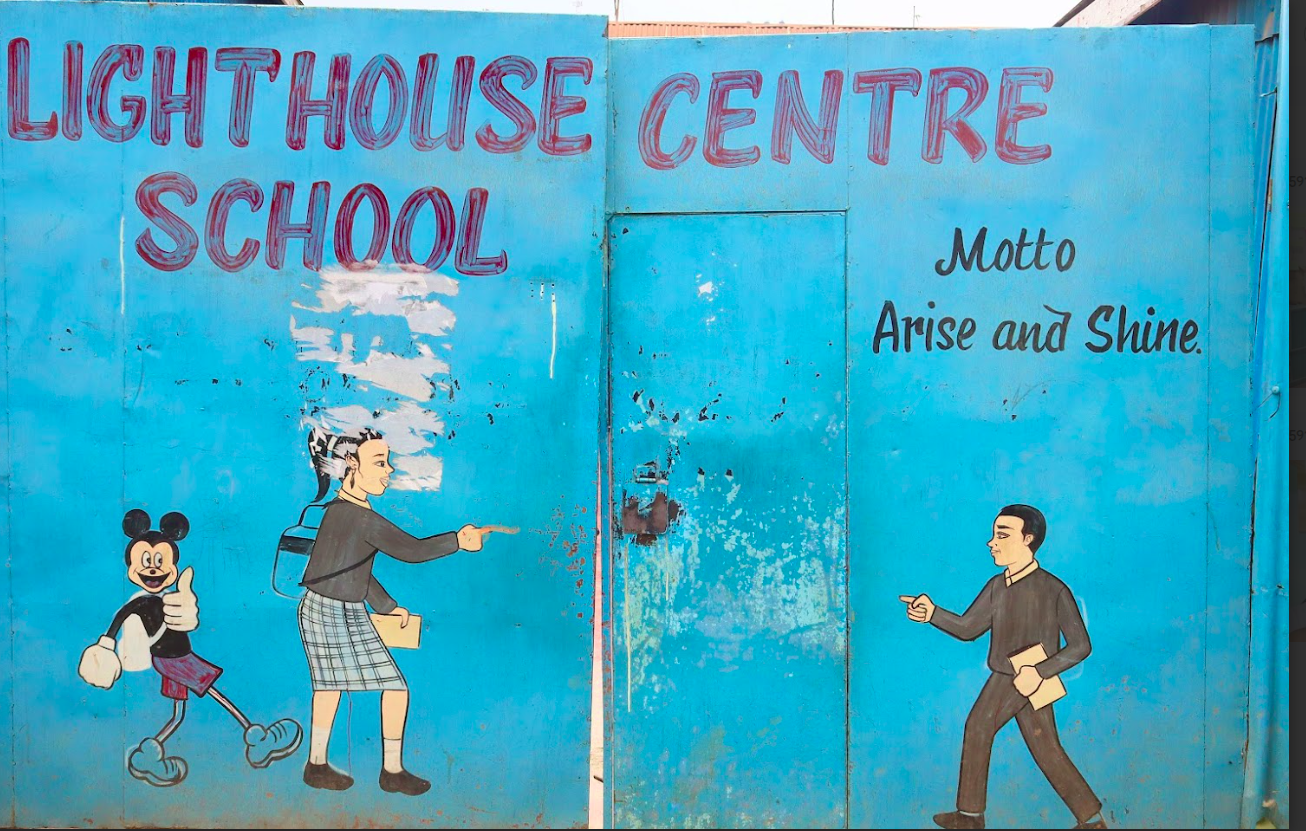 LIGHTHOUSE CENTRE
SCHOOL
Motto
Arise and Shine.